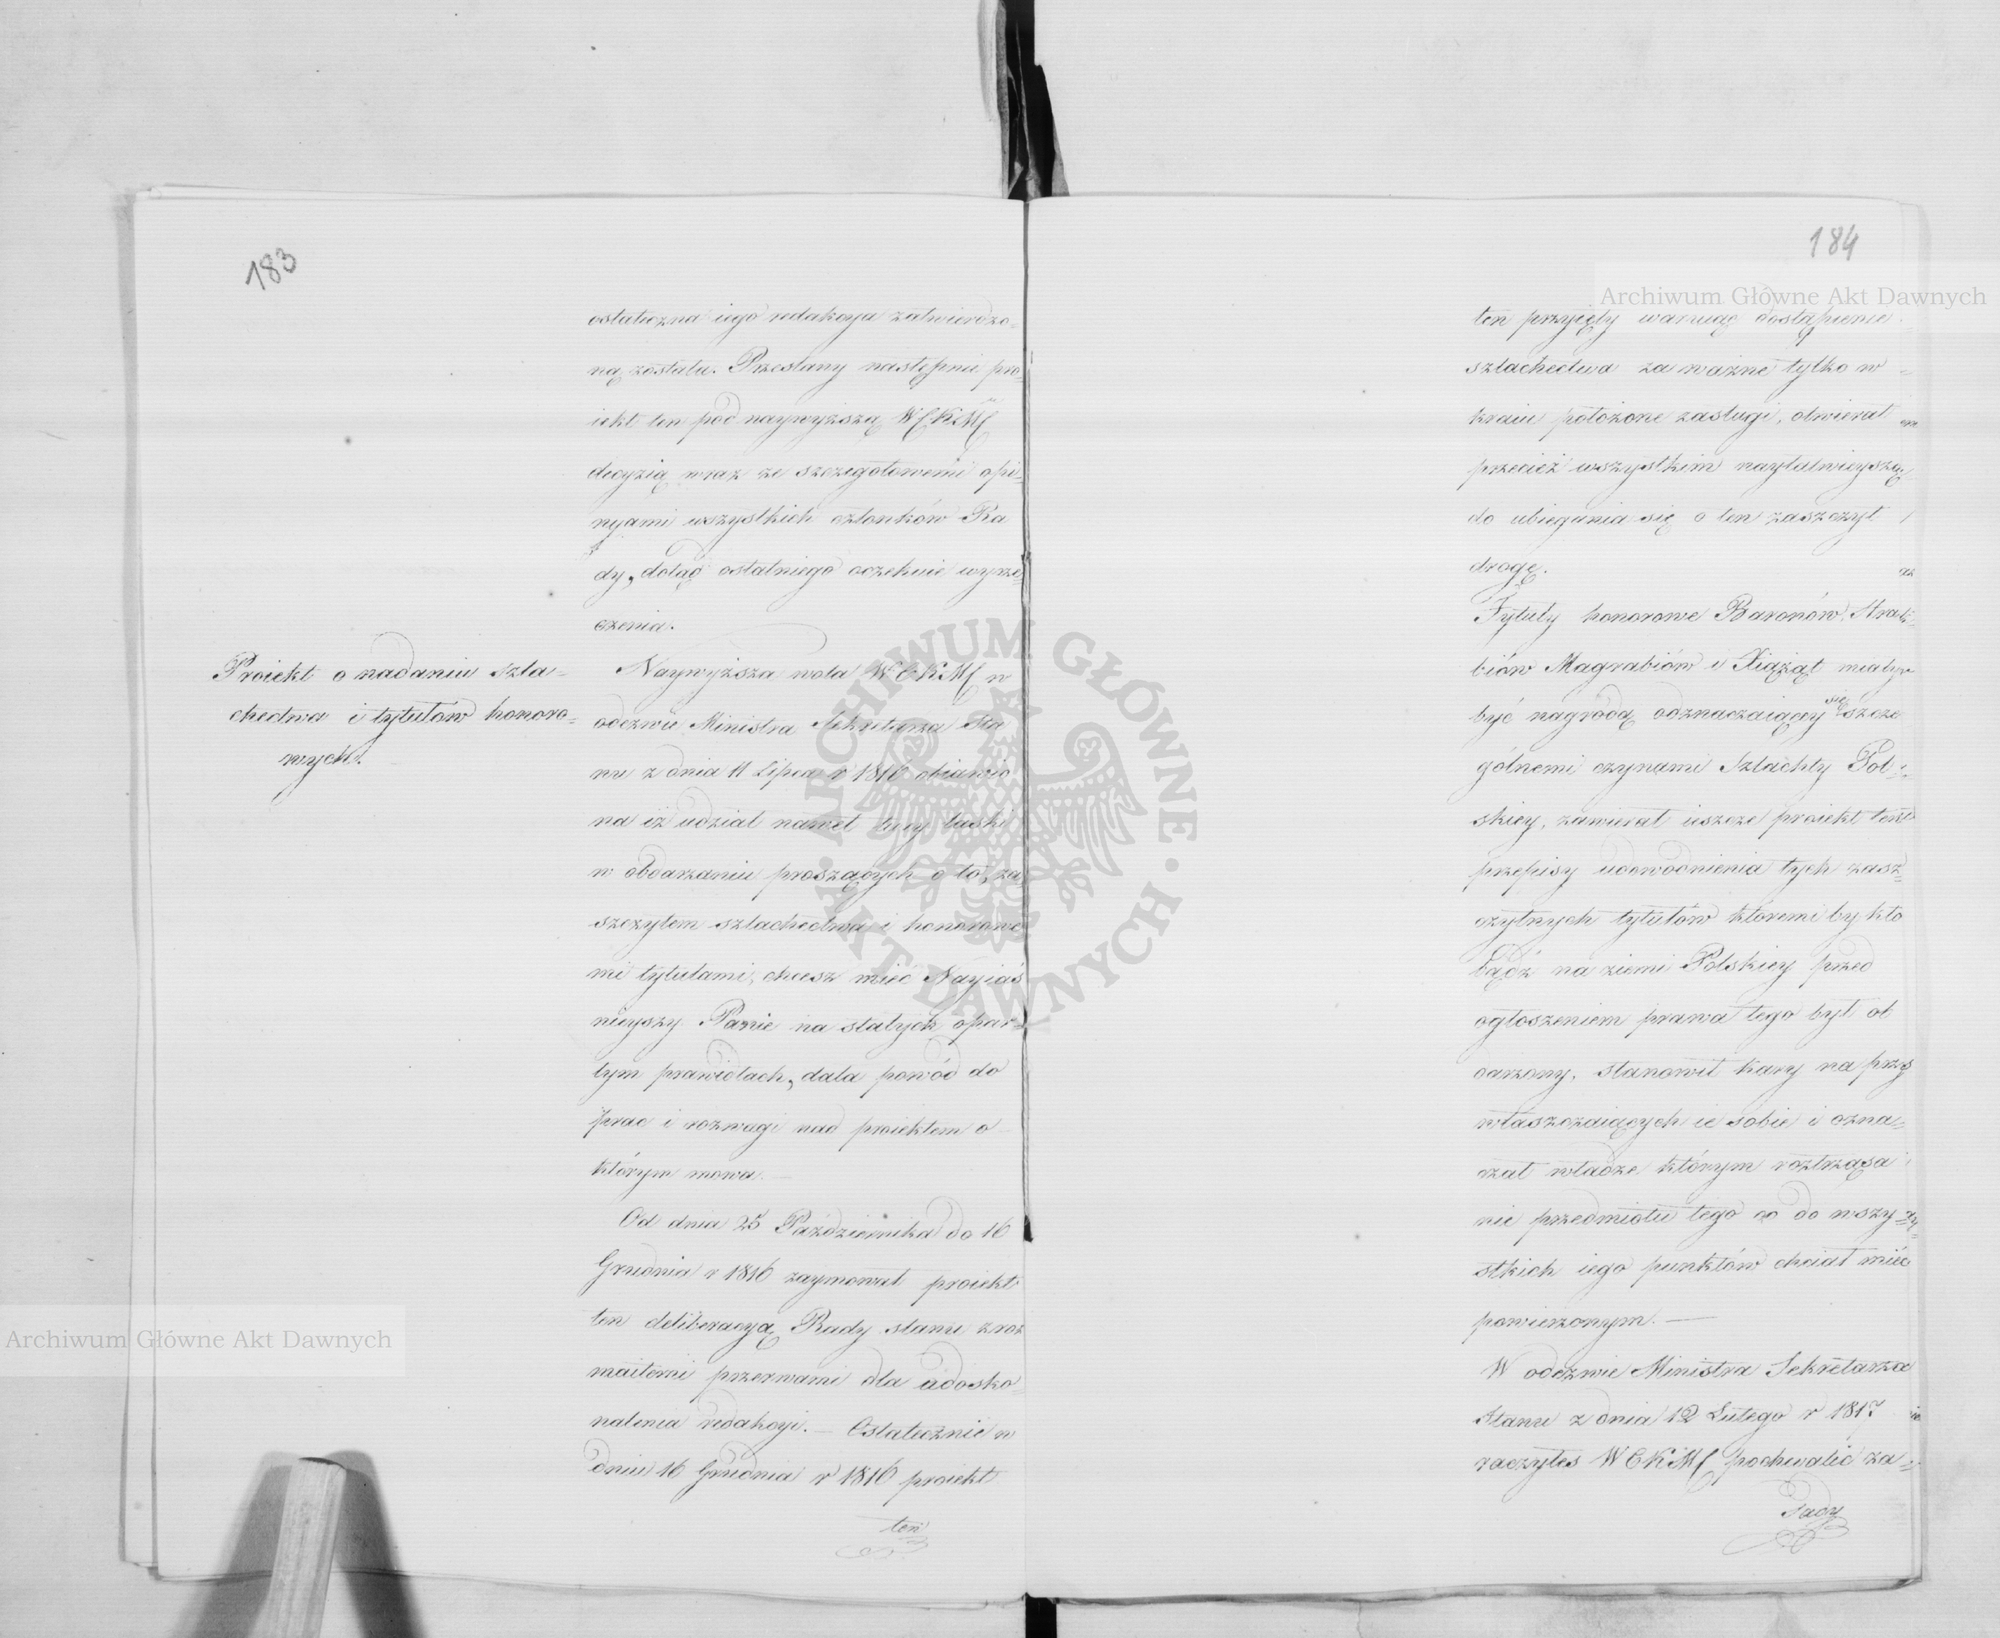 183
ostateczna iego redakcya zatwierdzo-
ną została. Przesłany następnie pro-
iekt ten pod naywyższą WCKMć
decyzią wraz ze szczegółowemi opi-
nyami wszystkich członków Ra
dy, dotąd ostatniego oczekuie wyrze-
czenia.
Proiekt o nadaniu szla-
chectwa i tytułów honoro-
wych.
Naywyższa wola WCKMć w
odezwie Ministra Sekretarza Sta
nu z dnia 11 Lipca r 1816 obiawio
na iż udział nawet tey łaski
w obdarzaniu proszących o to, za
szczytem szlachectwa i honorowe
mi tytułami, chcesz mieć Nayiaś
nieyszy Panie na stałych opar-
tym prawidłach, dała powód do
prac i rozwagi nad proiektem o
którym mowa. —
Od dnia 25 Października do 16
Grudnia r 1816 zaymował proiekt
ten deliberacyą Rady stanu z roz
maitemi przerwami dla udosko-
nalenia redakcyi. — Ostatecznie w
dniu 16 Grudnia r 1816 proiekt
ten
184
ten przyięty waruiąc dostąpienie
szlachectwa za ważne tylko w
kraiu położone zasługi, otwierał
przecież wszystkim nayłatwieyszą
do ubiegania się o ten zaszczyt
drogę.
Tytuły honorowe Baronów, Hrab-
biów Magrabiów i Xiążąt miały
być nagrodą odznaczaiącey się szcze
gólnemi czynami Szlachty Pol-
skiey, zawierał ieszcze proiekt ten
przepisy udowodnienia tych zasz-
czytnych tytułów któremi by kto
bądź na ziemi Polskiey przed
ogłoszeniem prawa tego był ob
darzony, stanowił kary na przy
właszczaiących ie sobie i ozna-
czał władze którym roztrząsa
nie przedmiotu tego co do wszy-
stkich iego punktów chciał mieć
powierzonym. —
W odezwie Ministra Sekretarza
Stanu z dnia 12 Lutego r 1817
raczyłeś WCKMć pochwalić za-
sady
Archiwum Główne Akt Dawnych
Archiwum Główne Akt Dawnych
ARCHIWUM GŁÓWNE AKT DAWNYCH